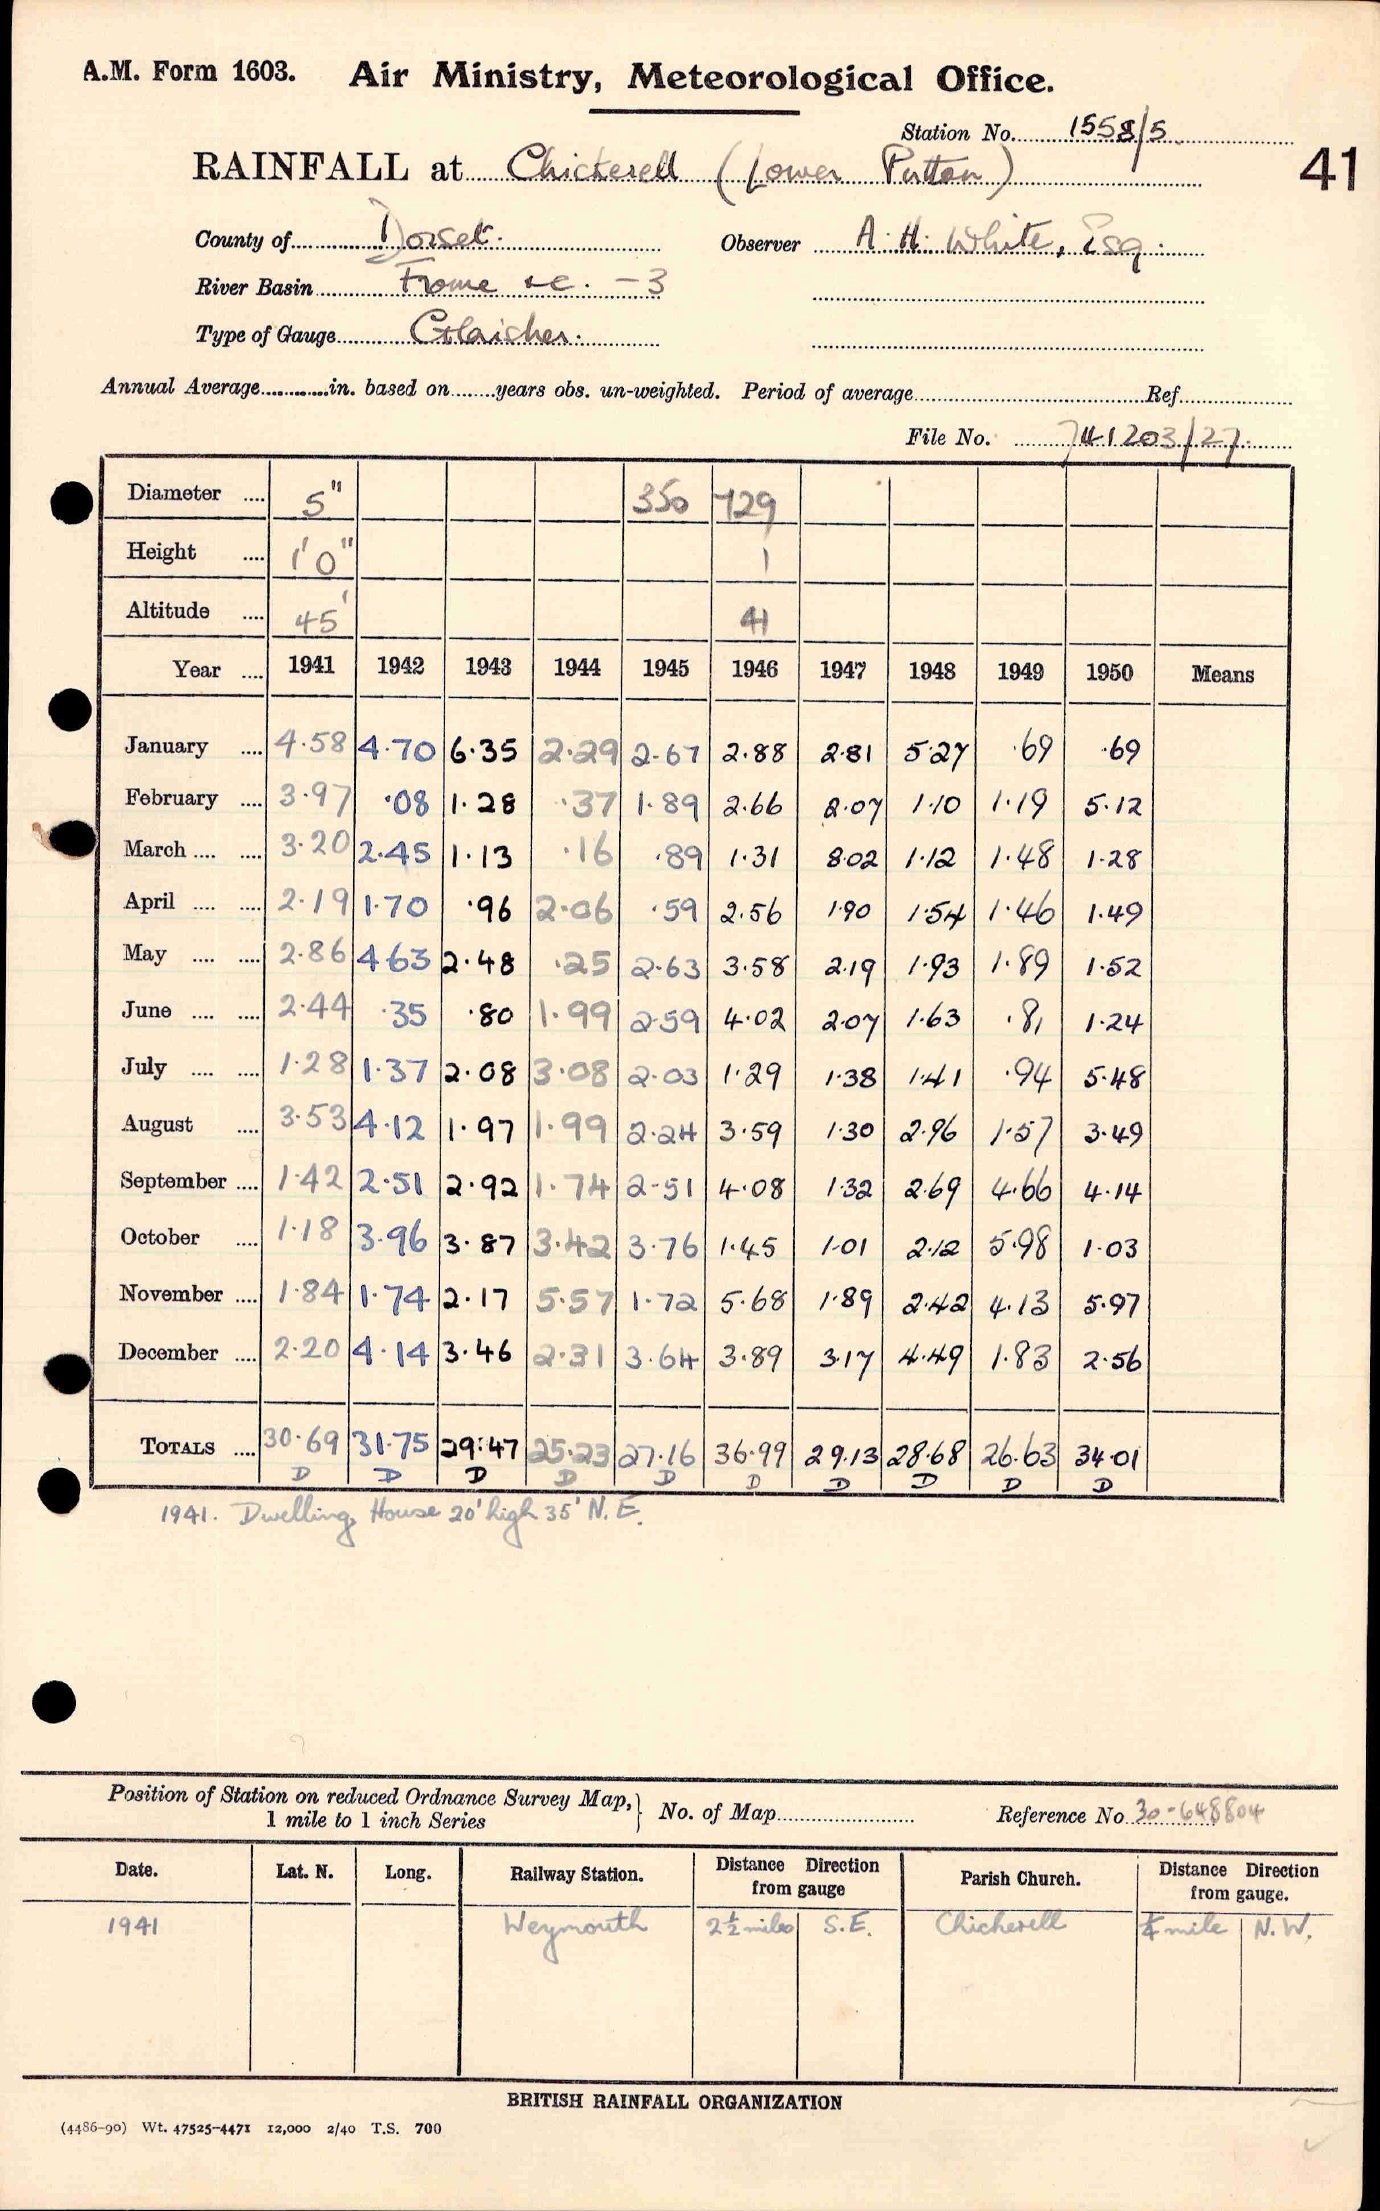 A.M. Form 1603. Air Ministry, Meteorological Office.
Station No. 1558/5
41
RAINFALL at Chickerell (Lower Putton)
County of Dorset. Observer A. H. White, Esq.
River Basin Frome &c. -3
Type of Gauge Glaisher.
Annual Average............in. based on........years obs. un-weighted. Period of average........ Ref........
File No. 741203/27.
Diameter .... 5" 350 729
Height .... 1'0" 1
Altitude .... 45' 41
Year .... 1941 1942 1943 1944 1945 1946 1947 1948 1949 1950 Means
January .... 4.58 4.70 6.35 2.29 2.67 2.88 2.81 5.27 .69 .69
February .... 3.97 .08 1.28 .37 1.89 2.66 2.07 1.10 1.19 5.12
March .... .... 3.20 2.45 1.13 .16 .89 1.31 8.02 1.12 1.48 1.28
April .... .... 2.19 1.70 .96 2.06 .59 2.56 1.90 1.54 1.46 1.49
May .... .... 2.86 4.63 2.48 .25 2.63 3.58 2.19 1.93 1.89 1.52
June .... .... 2.44 .35 .80 1.99 2.59 4.02 2.07 1.63 .81 1.24
July .... .... 1.28 1.37 2.08 3.08 2.03 1.29 1.38 1.41 .94 5.48
August .... 3.53 4.12 1.97 1.99 2.24 3.59 1.30 2.96 1.57 3.49
September .... 1.42 2.51 2.92 1.74 2.51 4.08 1.32 2.69 4.66 4.14
October .... 1.18 3.96 3.87 3.42 3.76 1.45 1.01 2.12 5.98 1.03
November .... 1.84 1.74 2.17 5.57 1.72 5.68 1.89 2.42 4.13 5.97
December .... 2.20 4.14 3.46 2.31 3.64 3.89 3.17 4.49 1.83 2.56
TOTALS .... 30.69 31.75 29.47 25.23 27.16 36.99 29.13 28.68 26.63 34.01
D D D D D D D D D D
1941. Dwelling House 20' high 35' N.E.
Position of Station on reduced Ordnance Survey Map,} No. of Map........ Reference No. 30-648804
1 mile to 1 inch Series
Date. Lat. N. Long. Railway Station. Distance Direction from gauge Parish Church. Distance Direction from gauge.
1941 Weymouth 2½ miles S.E. Chickerell ¼ mile N.W.
BRITISH RAINFALL ORGANIZATION
(4486-90) Wt. 47525-4471 12,000 2/40 T.S. 700